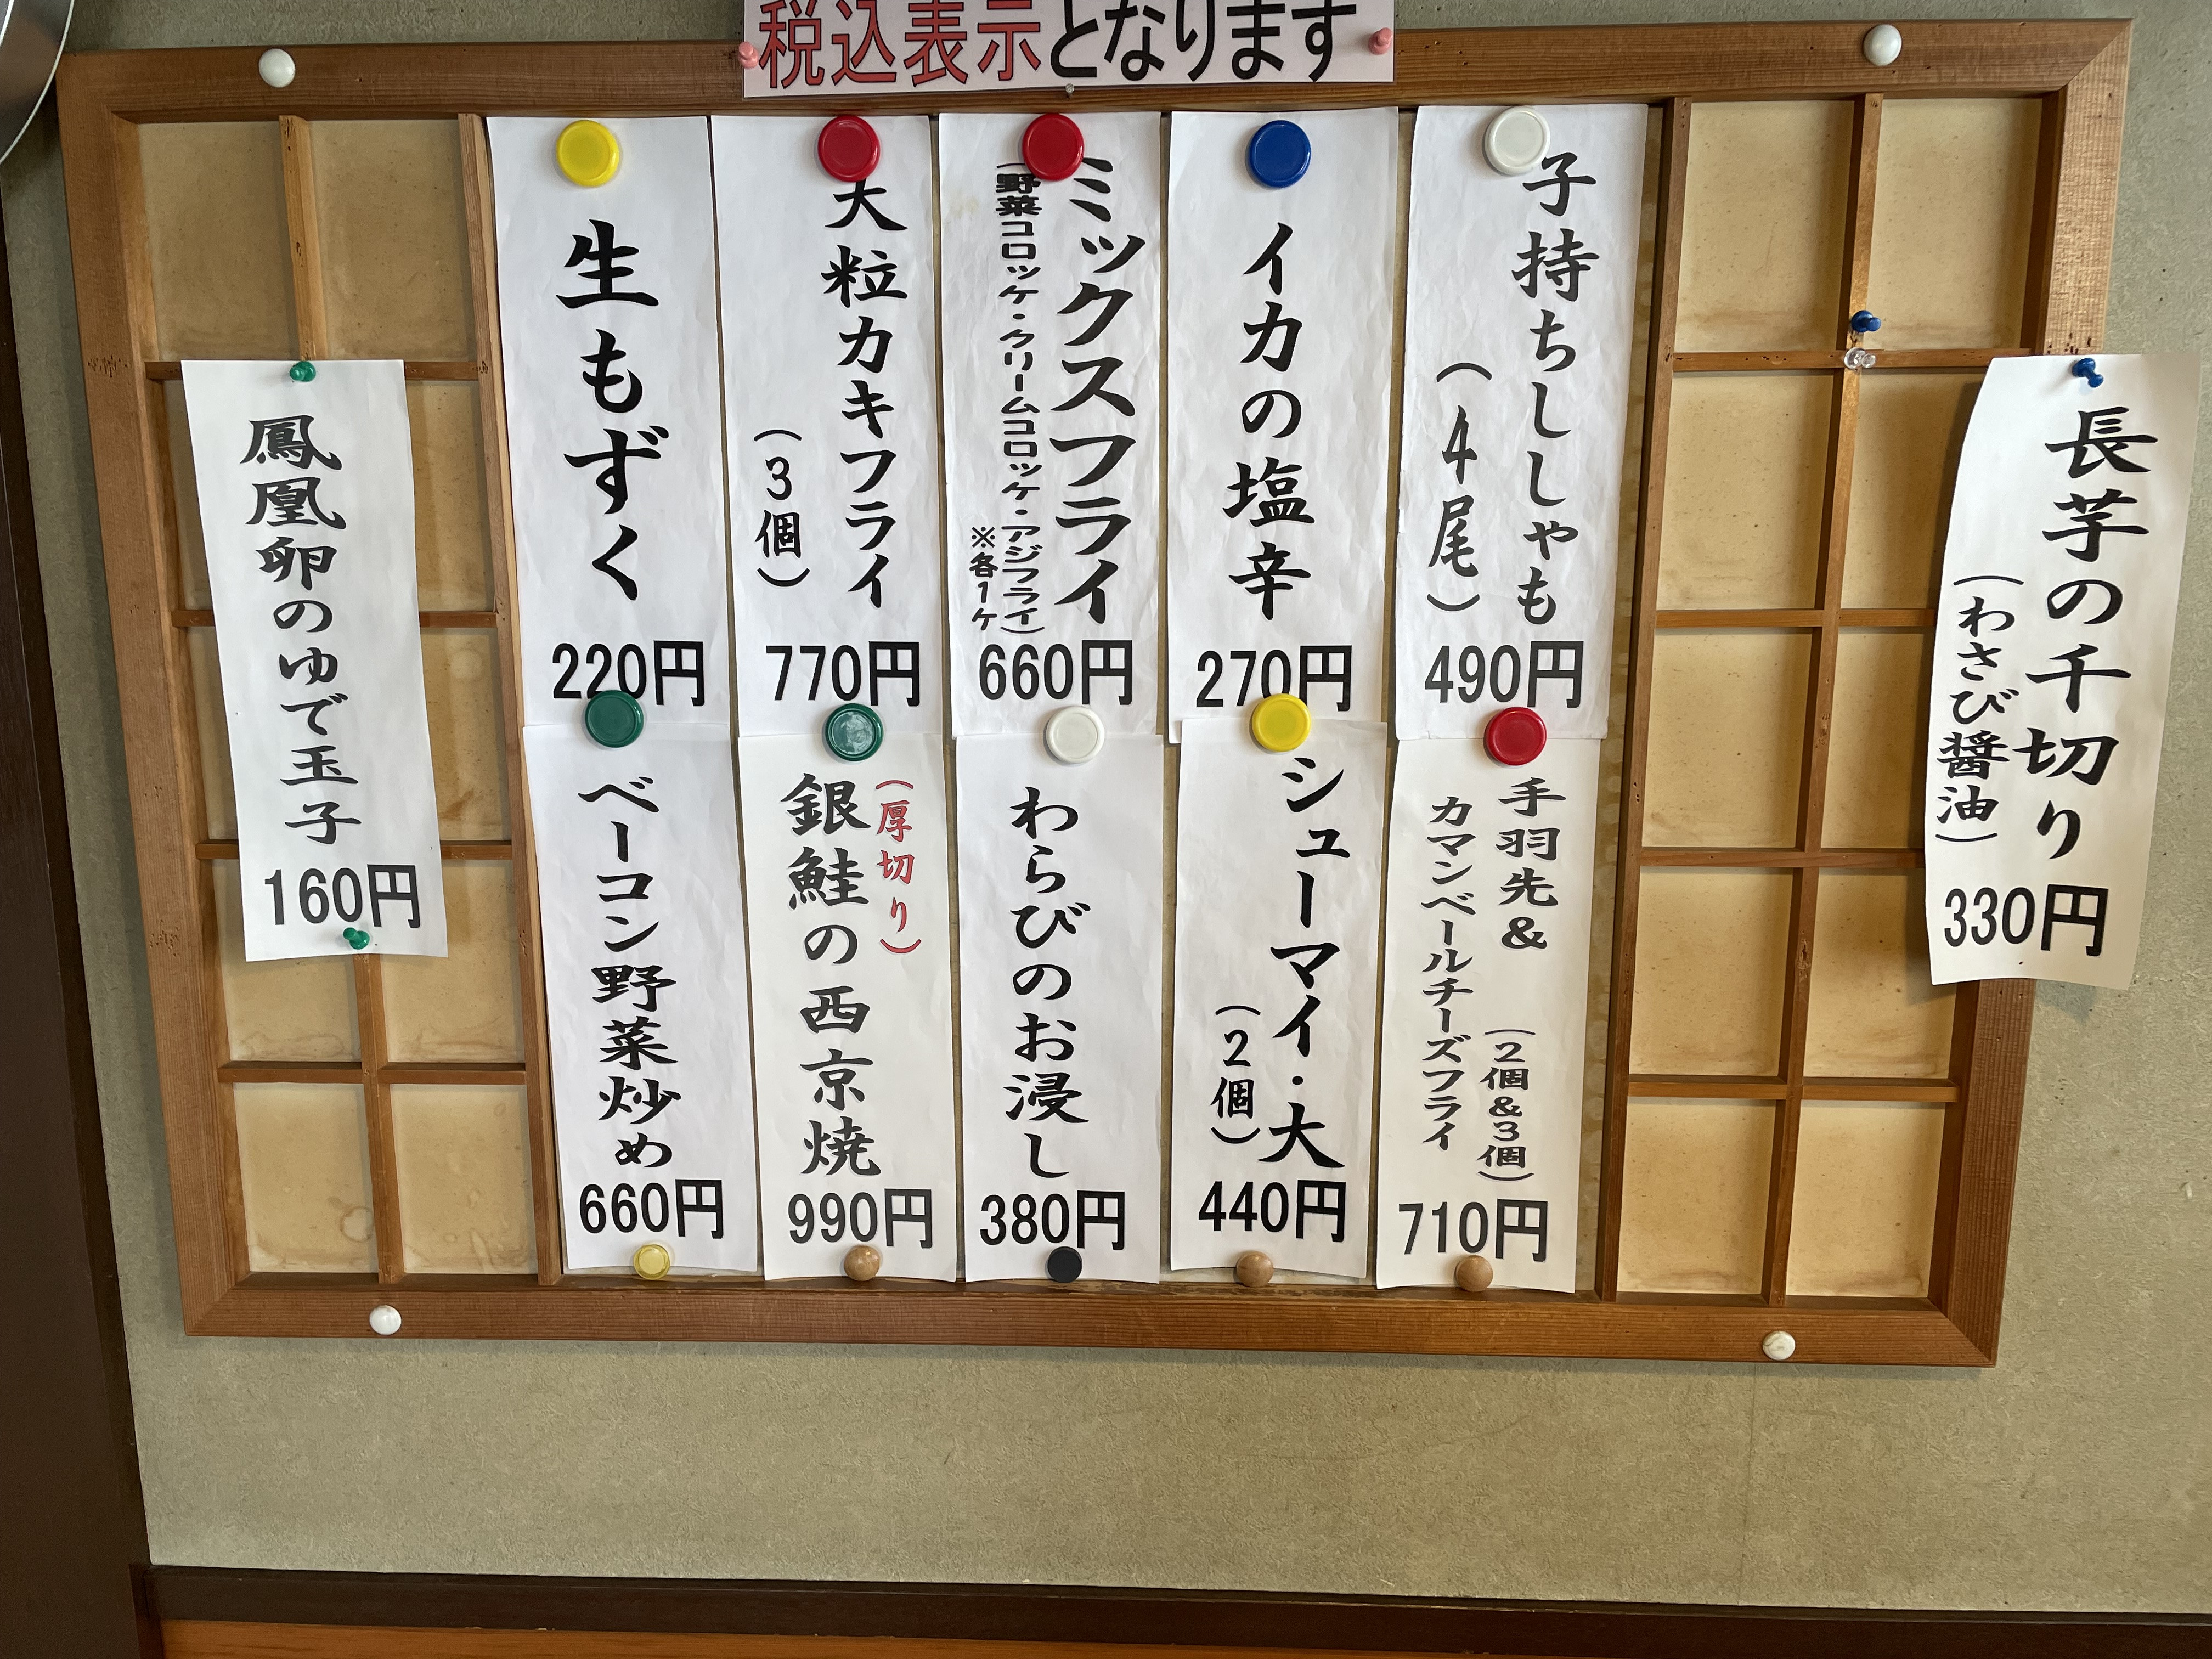 税込表示となります
長芋の千切り
(わさび醤油)
330円
子持ちししゃも
(4尾)
490円
イカの塩辛
270円
ミックスフライ
(野菜コロッケ・クリームコロッケ・アジフライ)
※各1ケ
660円
大粒カキフライ
(3個)
770円
生もずく
220円
手羽先&
(2個&3個)
カマンベールチーズフライ
710円
シューマイ・大
(2個)
440円
わらびのお浸し
380円
(厚切り)
銀鮭の西京焼
990円
ベーコン野菜炒め
660円
鳳凰卵のゆで玉子
160円